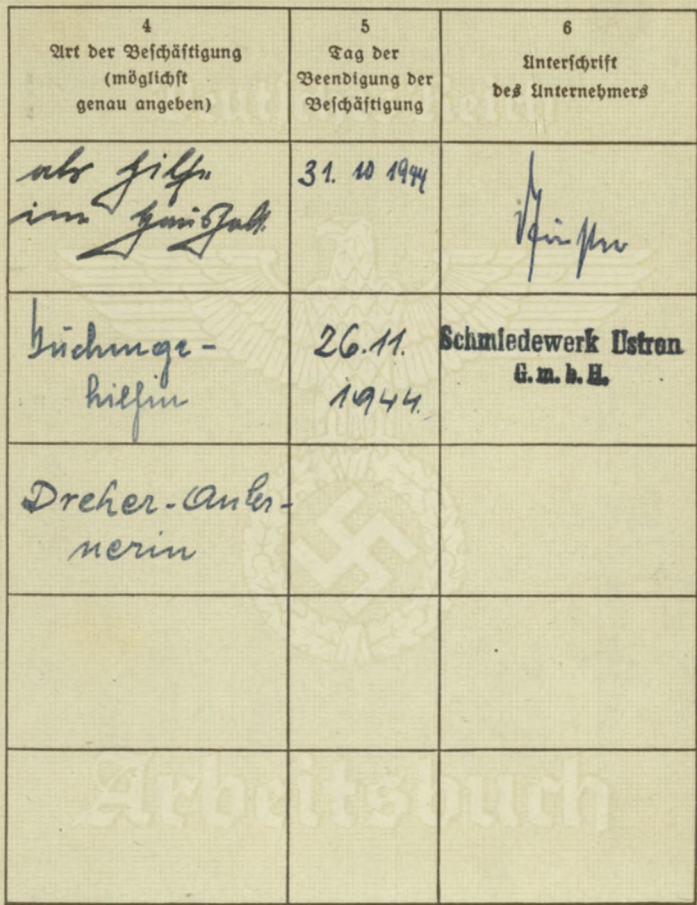 4
Art der Beschäftigung
(möglichst
genau angeben)
5
Tag der
Beendigung der
Beschäftigung
6
Unterschrift
des Unternehmers
als Hilfe
im Haushalt
31. 10 1944
hilfin
26.11.
1944.
Schmiedewerk Ustron
G.m.b.H.
Dreher-Anler-
nerin
Arbeitsbuch